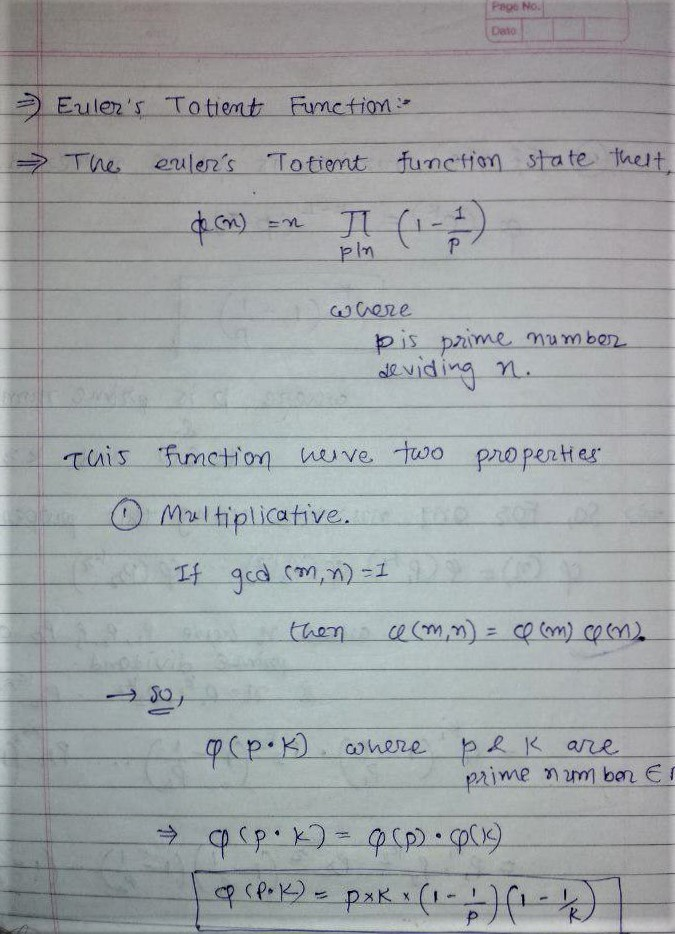 Page No.
Date
⇒ Euler's Totient Function:-
⇒ The euler's Totient function state that,
φ(n) = n ∏ (1 - 1/p)
p|n
where
p is prime number
deviding n.
This function have two properties
① Multiplicative.
If gcd (m,n) = 1
then φ(m,n) = φ(m) φ(n).
→ so,
φ(p·K) where p & K are
prime number ∈
⇒ φ(p·K) = φ(p)·φ(K)
φ(p·K) = p×K×(1 - 1/p)(1 - 1/K)